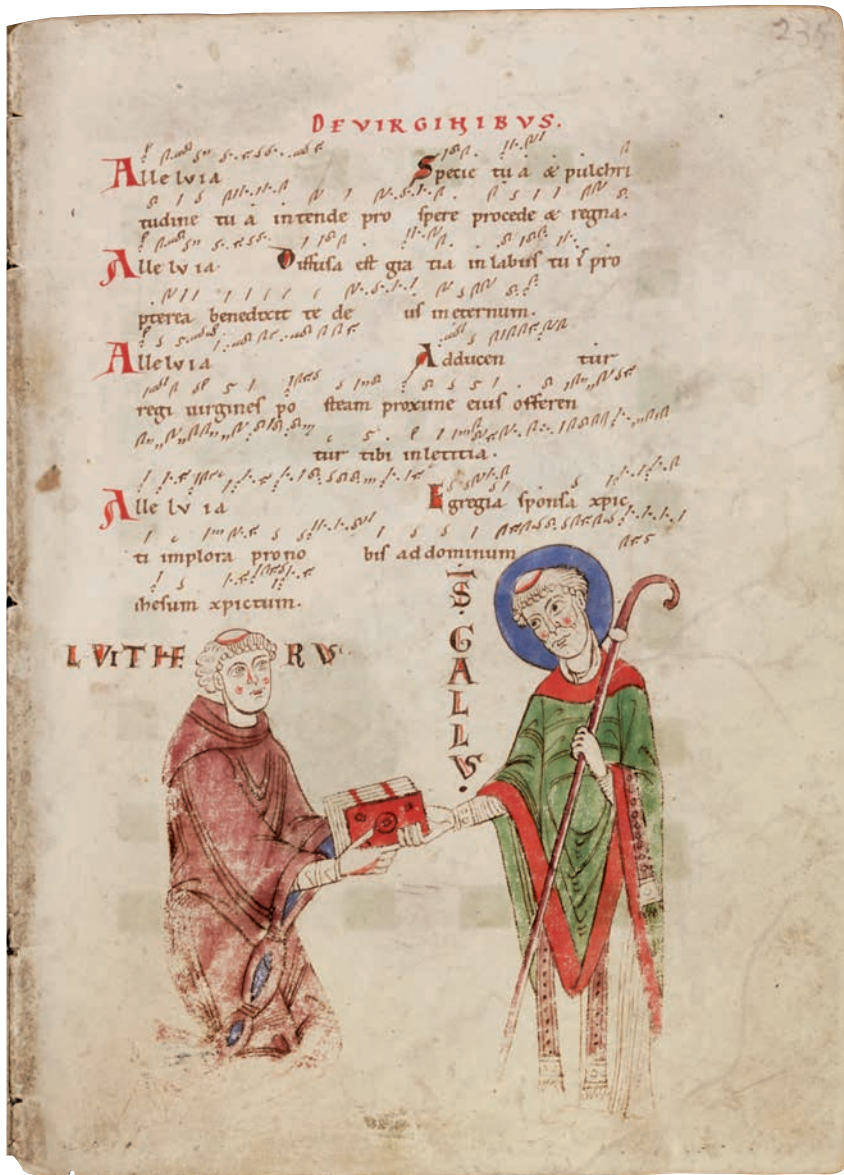 235
DE VIRGINIBVS.
Alleluia Specie tu a & pulchri
tudine tu a intende pro spere procede & regna.
Alle lv ia. Diffusa est gra tia in labiis tu is pro
pterea benedixit te de us in eternum.
Alleluia Adducen tur
regi uirgines po steam proxime eius offeren
tur tibi in leticia.
Alle lv ia Egregia sponsa xpic
ti implora pro no bis ad dominum
ihesum xpictum.
S. GALLVS.
LVITHERVS